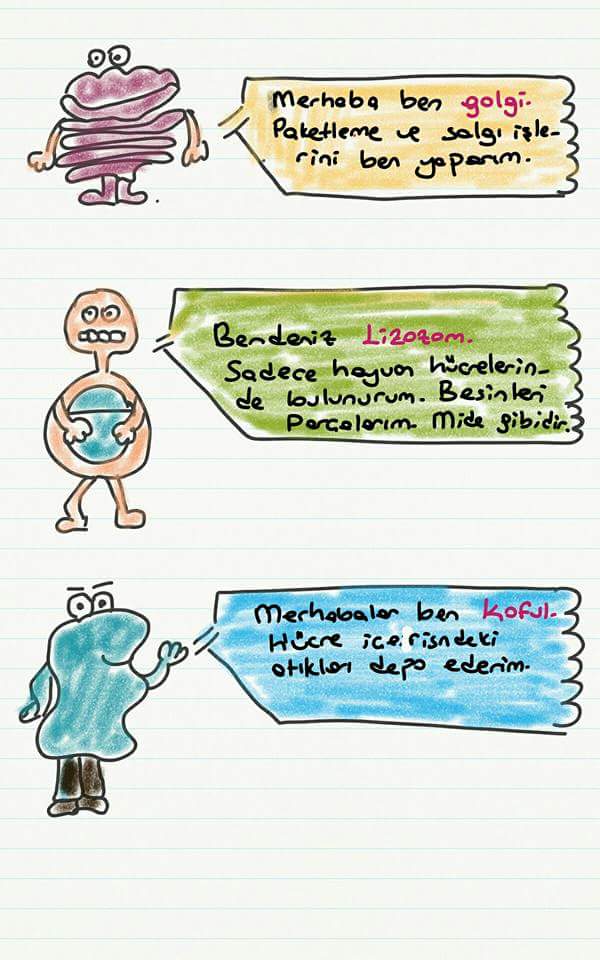 Merhaba ben golgi.
Paketleme ve salgı işle-
rini ben yaparım.
Bendeniz Lizozom.
Sadece hayvan hücrelerin-
de bulunurum. Besinleri
Parçalarım. Mide gibidir.
Merhabalar ben Koful.
Hücre içerisndeki
atıkları depo ederim.